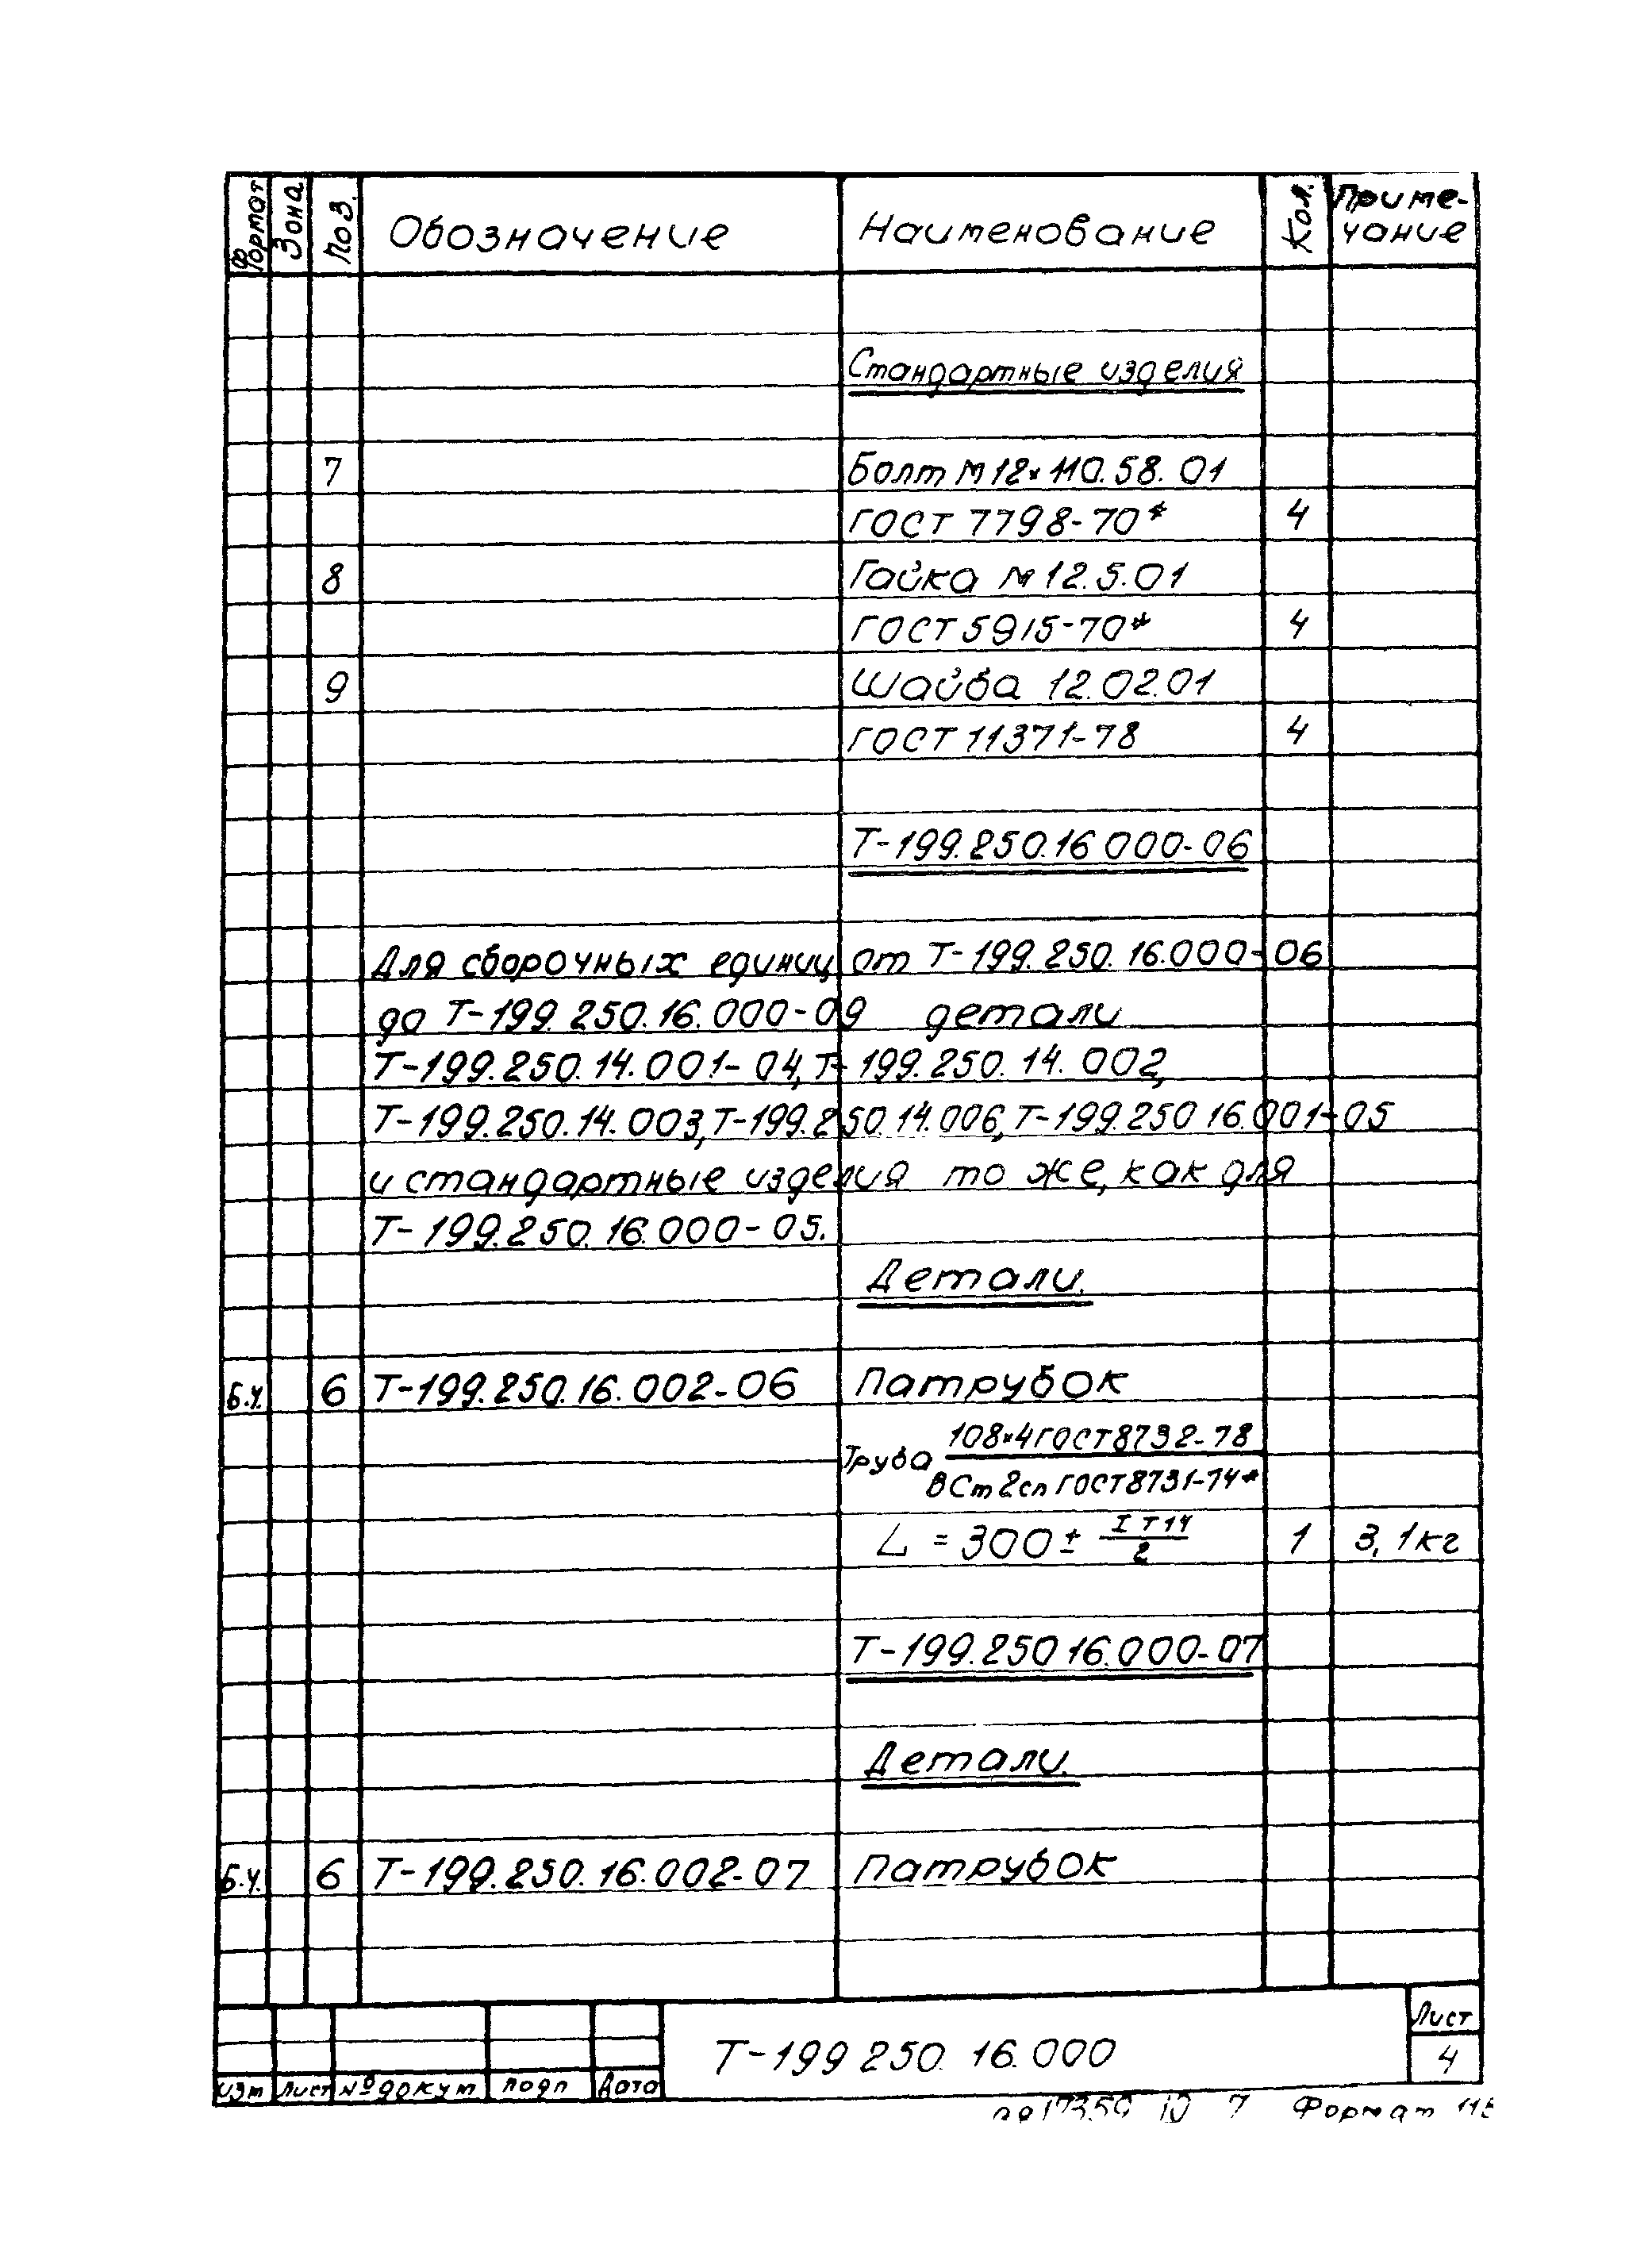 Формат Зона Поз. Обозначение Наименование Кол. Приме-
чание
Стандартные изделия
7 Болт М12×110.58.01
ГОСТ 7798-70* 4
8 Гайка М12.5.01
ГОСТ 5915-70* 4
9 Шайба 12.02.01
ГОСТ 11371-78 4
Т-199.250.16 000-06
Для сборочных единиц от Т-199.250.16.000-06
до Т-199.250.16.000-09 детали
Т-199.250.14.001-04, Т-199.250.14.002,
Т-199.250.14.003, Т-199.250.14.006, Т-199.250 16.001-05
и стандартные изделия то же, как для
Т-199.250.16.000-05.
Детали.
Б.Ч. 6 Т-199.250.16.002-06 Патрубок
Труба 108×4 ГОСТ 8732-78
ВСт2сп ГОСТ 8731-74*
L = 300 ± IT14/2 1 3,1кг
Т-199.250 16.000-07
Детали.
Б.Ч. 6 Т-199.250.16.002-07 Патрубок
Т-199 250. 16.000
Лист
4
Изм Лист № докум Подп Дата
7 Формат